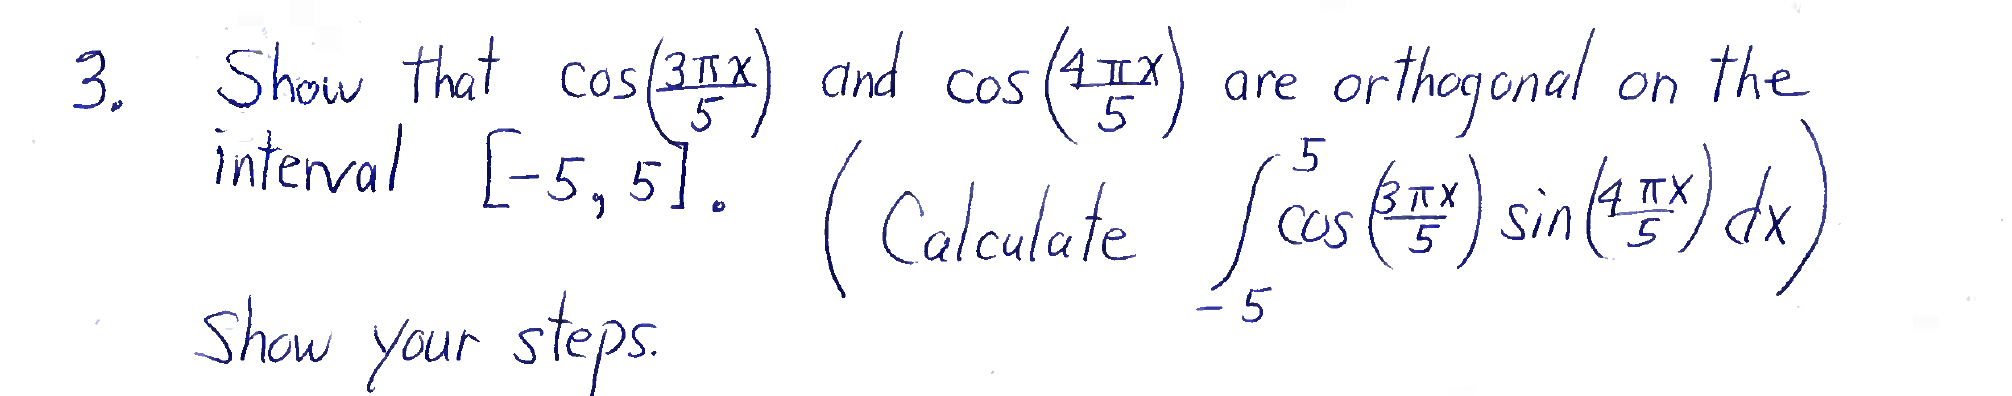 3. Show that cos(3πx/5) and cos(4πx/5) are orthogonal on the
interval [-5, 5]. (Calculate ∫_{-5}^{5} cos(3πx/5) sin(4πx/5) dx)
Show your steps.